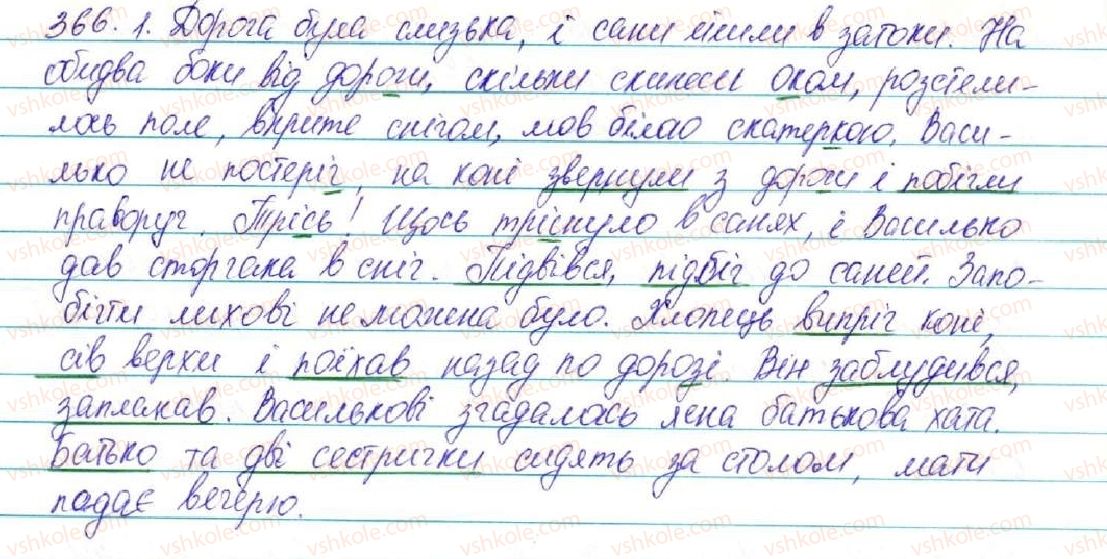 366. 1. Дорога була слизька, і сани йшли в затоки. На
обидва боки від дороги, скільки скинеш оком, розстели-
лось поле, вкрите снігом, мов білою скатеркою. Васи-
лько не постеріг, як коні звернули з дороги і побігли
праворуч. Трісь! Щось тріснуло в санях, і Василько
дав сторчака в сніг. Підвівся, підбіг до саней. Запо-
бігти лихові неможна було. Хлопець випріг коні,
сів верхи і поїхав назад по дорозі. Він заблудився,
заплакав. Василькові згадалась ясна батькова хата.
Батько та дві сестрички сидять за столом, мати
подає вечерю.